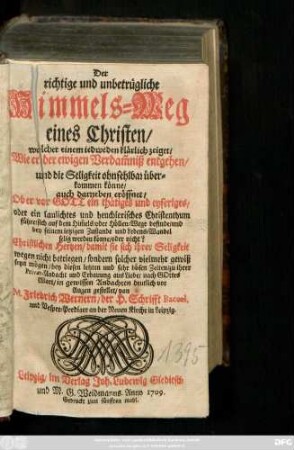 Der
richtige und unbetrügliche
Himmels-Weg
eines Christen/
welcher einem iedweden klärlich zeiget/
Wie er der ewigen Verdamniß entgehen/
und die Seligkeit ohnfehlbar über-
kommen könne/
auch darneben eröffnet/
Ob er vor GOTT ein thätiges und eyferiges/
oder ein laulichtes und heuchlerisches Christenthum
führe/sich auf dem Himels oder Höllen-Wege befinde/und
bey seinem ietzigen Zustande und Lebens-Wandel
selig werden könne/oder nicht?
Christlichen Hertzen/ damit sie sich ihrer Seligkeit
wegen nicht betriegen/ sondern solcher vielmehr gewiß
seyn mögen/ bey diesen letzten und sehr bösen Zeiten/zu ihrer
Privat-Andacht und Erbauung aus Liebe nach GOttes
Wort/ in gewissen Andachten deutlich vor
Augen gestellet/ von
M. Friedrich Wernern/ der H. Schrifft Baccal.
und Vesper-Prediger an der Neuen Kirche in Leipzig.
1395
Leipzig/ im Verlag Joh. Ludewig Gleditsch/
und M. G. Weidmanns. Anno 1709.
Gedruckt zum fünfften mahl.